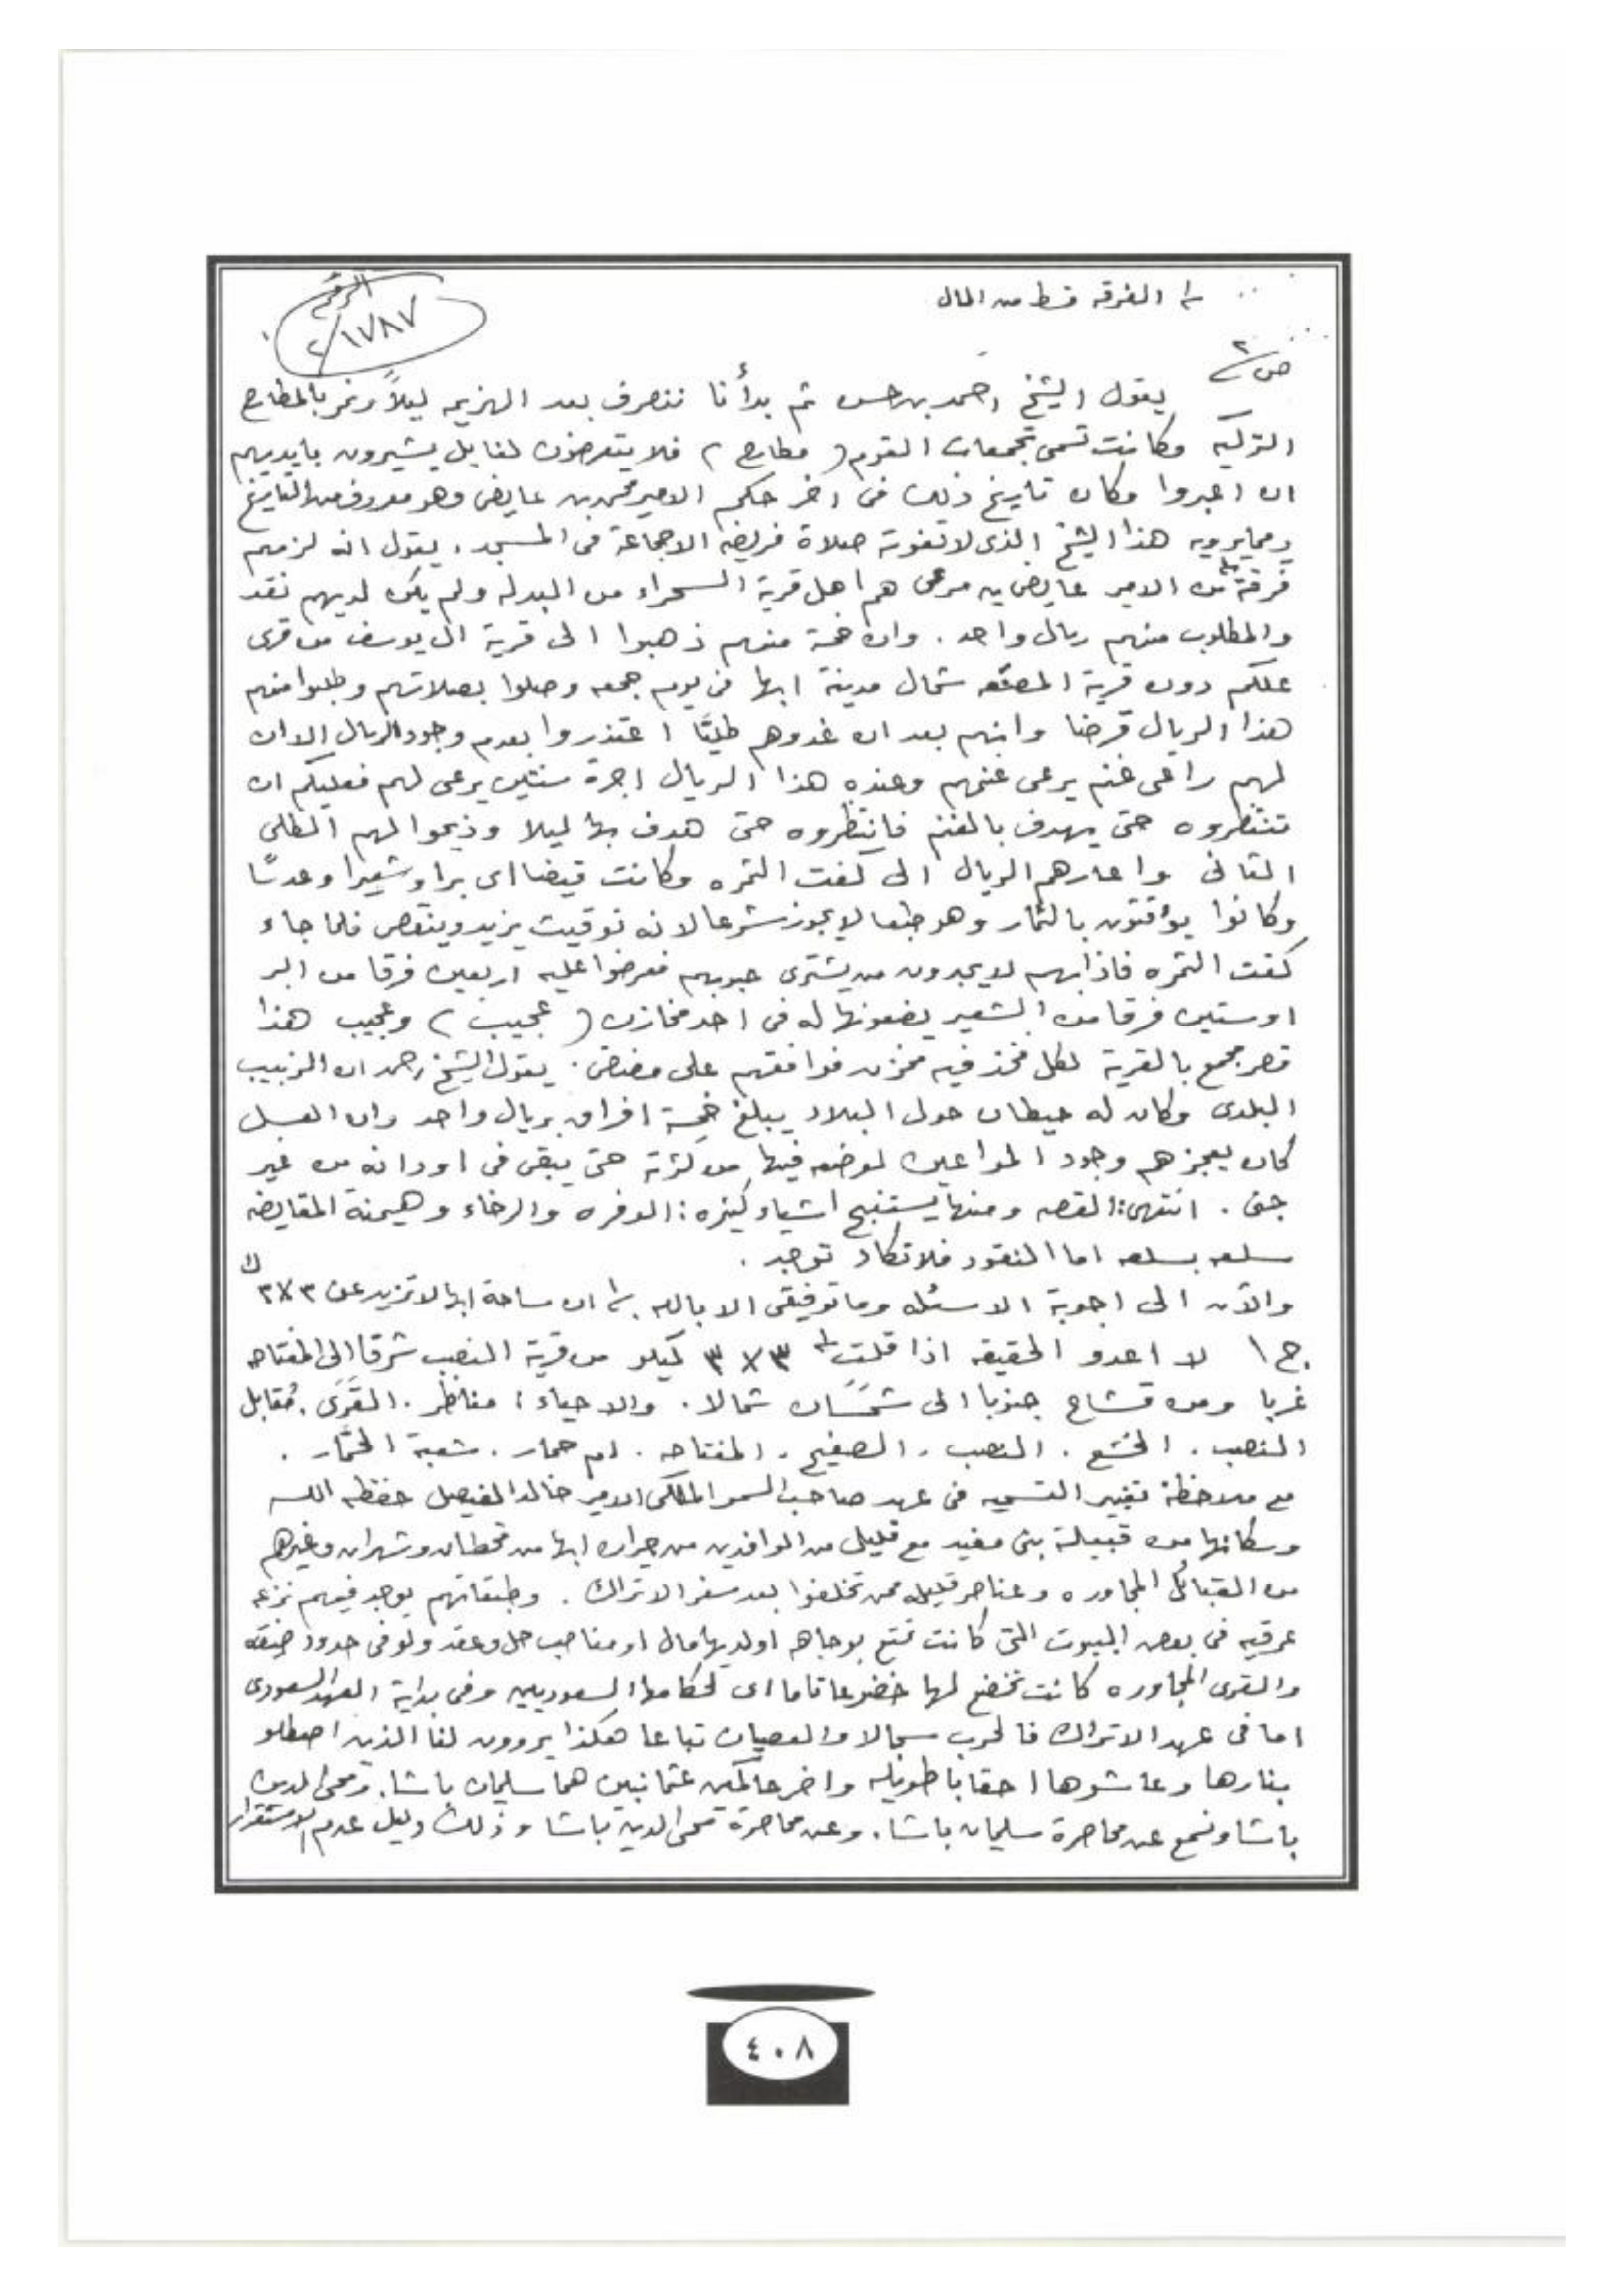 ١/ الفرقه قسط من المال
الرقم
٢/١٧٨٧
ص/٢
يقول الشيخ احمد بن حسن ثم بدأنا ننصرف بعد الهزيمه ليلاً ونمر بالمطارح
التركيه وكانت تسمى تجمعات القوم ( مطارح ) فلا يتعرضون لنا بل يشيرون بايديهم
ان اعبروا وكان تاريخ ذلك فى اخر حكم الامير محمد بن عايض وهو معروف من التاريخ
ومما يرويه هذا الشيخ الذى لا تفوته صلاة فريضه الا جماعة فى المسجد . يقول انه لزمهم
فرقة/١ من الامير عايض بن مرعى هم اهل قرية السحراء من البدله ولم يكن لديهم نقد
والمطلوب منهم ريال واحد . وان خمسة منهم ذهبوا الى قرية ال يوسف من قرى
علكم دون قرية شمال مدينة ابها فى يوم جمعه وصلوا بصلاتهم وطلبوا منهم
هذا الريال قرضا وانهم بعد ان غدوهم اعتذروا بعدم وجود الريال الا ان
لهم راعى غنم يرعى غنمهم وعنده هذا الريال اجرة سنتين يرعى لهم فعليكم ان
تنتظروه حتى يهدف بالغنم فانتظروه حتى هدف بها ليلا وذبحوا لهم الطلى
الثانى واعارهم الريال الى كفت الثمره وكانت قيضا اى برا وشعيرا وعدسًا
وكانوا يوقتون بالثمار وهو طبعا لا يجوز شرعا لانه توقيت يزيد وينقص فلما جاء
كفت الثمره فاذا بهم لا يجدون من يشترى حبوبهم فعرضوا عليه اربعين فرقا من البر
او ستين فرقا من الشعير يضعونها له فى احد مخازن ( عجيب ) وعجيب هذا
قصر مجمع بالقرية لكل فخذ فيه مخزن فوافقهم على مضض . يقول الشيخ احمد ان الزبيب
البلدى وكان له حيطان حول البلاد يبلغ خمسة افراق بريال واحد وان العسل
كان يعجزهم وجود المواعين لوضعه فيها من كثرته حتى يبقى فى اودانه من غير
جنى . انتهى: القصه ومنها يستنبج اشياء كثيره : الوفره والرخاء وهيمنة المقايضه
سلعه بسلعه اما النقود فلا تكاد توجد .
والآن الى اجوبة الاسئله وما توفيقى الا بالله . ١/ ان مساحة ابها لا تزيد عن ٣×٣ ك
ج١ لا اعدو الحقيقه اذا قلت ٣×٣ كيلو من قرية النصب شرقا الى المفتاحه
غربا ومن قشاع جنوبا الى شمَسَان شمالا . والاحياء : مناظر . القَرَى . مُقابل
النصب . الخشع . النصب . الصفيح . المفتاحه . ام حمار . شعبة الخمَّار .
مع ملاحظة تغيير التسميه فى عهد صاحب السمو الملكى الامير خالد الفيصل حفظه الله
وسكانها من قبيلة بنى مغيد مع قليل من الوافدين من جيران ابها من قحطان وشهران وغيرهم
من القبائل المجاوره وعناصر قليله ممن تخلفوا بعد سفر الاتراك . وطبقاتهم يوجد فيهم نزعه
عرقيه فى بعض البيوت التى كانت تمتع بوجاهه او لديها مال او مناصب حل وعقد ولو فى حدود ضيقه
والقرى المجاوره كانت تخضع لها خضوعا تاما اى لحكامها السعوديين وفى بداية العهد السعودى
اما فى عهد الاتراك فالحرب سجالا والعصيان تباعا هكذا يروون لنا الذين اصطلو
بنارها وعاشوها احقابا طويله واخر حاكمين عثمانيين هما سليمان باشا . ومحى الدين
باشا ونسمع عن محاصرة سليمان باشا . وعن محاصرة محى الدين باشا وذلك دليل عدم الاستقرار
٤٠٨